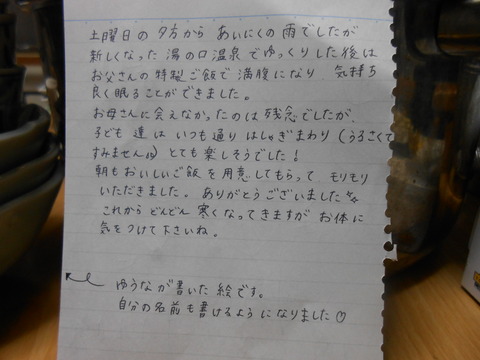 土曜日の夕方から あいにくの雨でしたが
新しくなった 湯の口温泉でゆっくりした後は
お父さんの特製ご飯で満腹になり 気持ち
良く眠ることができました。
お母さんに会えなかったのは残念でしたが、
子ども達は いつも通り はしゃぎまわり(うるさくて
すみません) とても楽しそうでした!
朝もおいしいご飯を用意してもらって モリモリ
いただきました。ありがとうございました
これから どんどん 寒くなってきますが お体に
気をつけて下さいね。
ゆうなが書いた絵です。
自分の名前も書けるようになりました♡